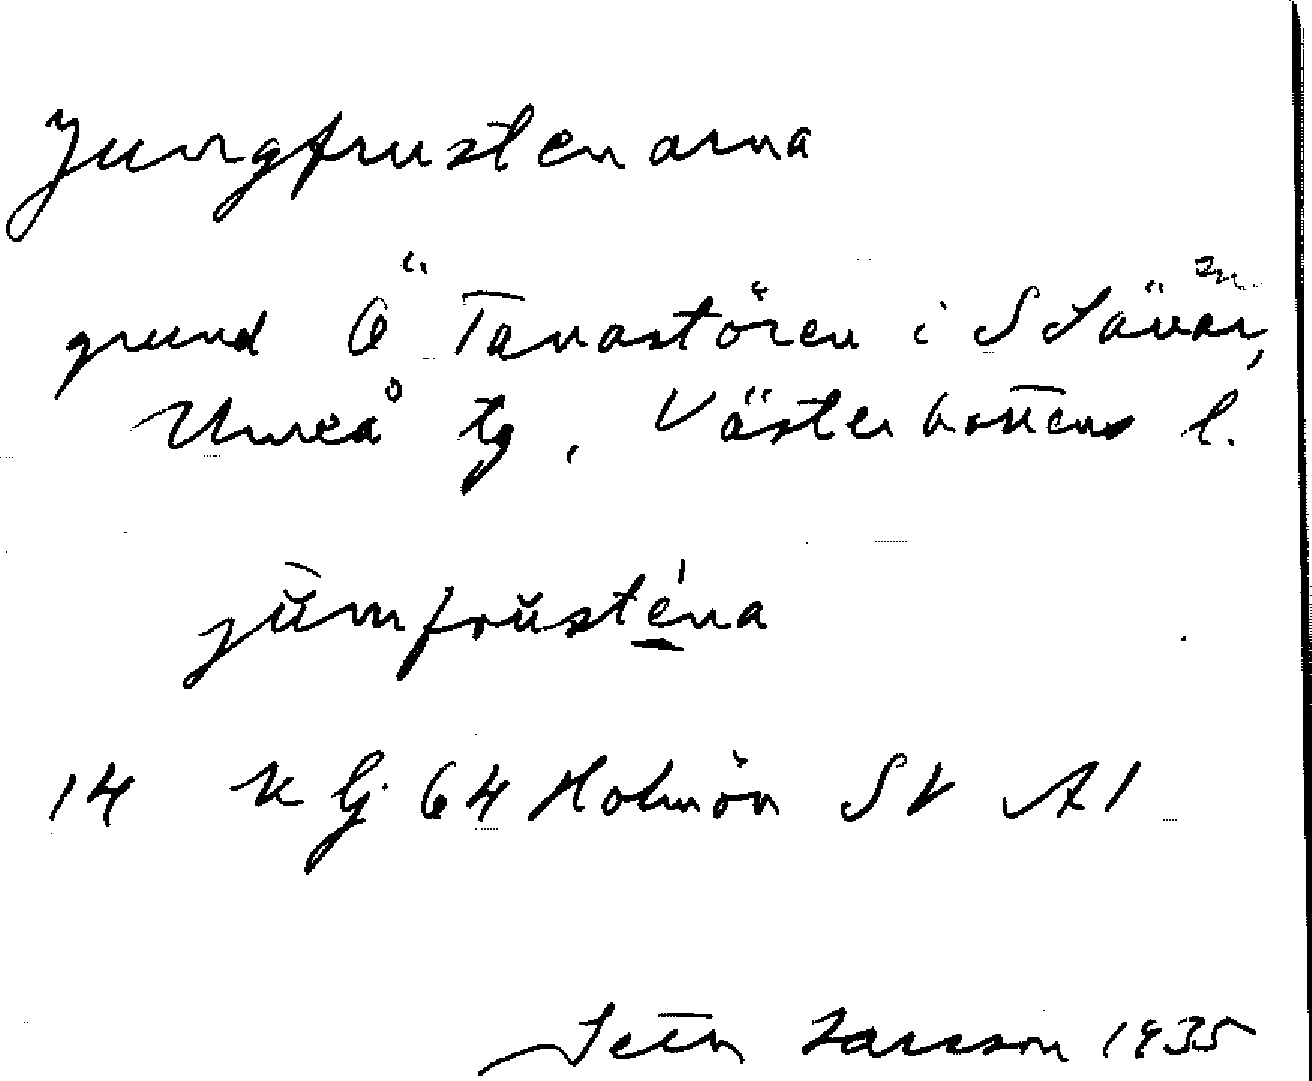 Jungfrustenarna
grund Ö Tavastören i S Sävar,
Umeå tg, Västerbottens l.
jŭmfrŭsténa
14 K lj 64 Holmön SV A1
Sten Larsson 1935